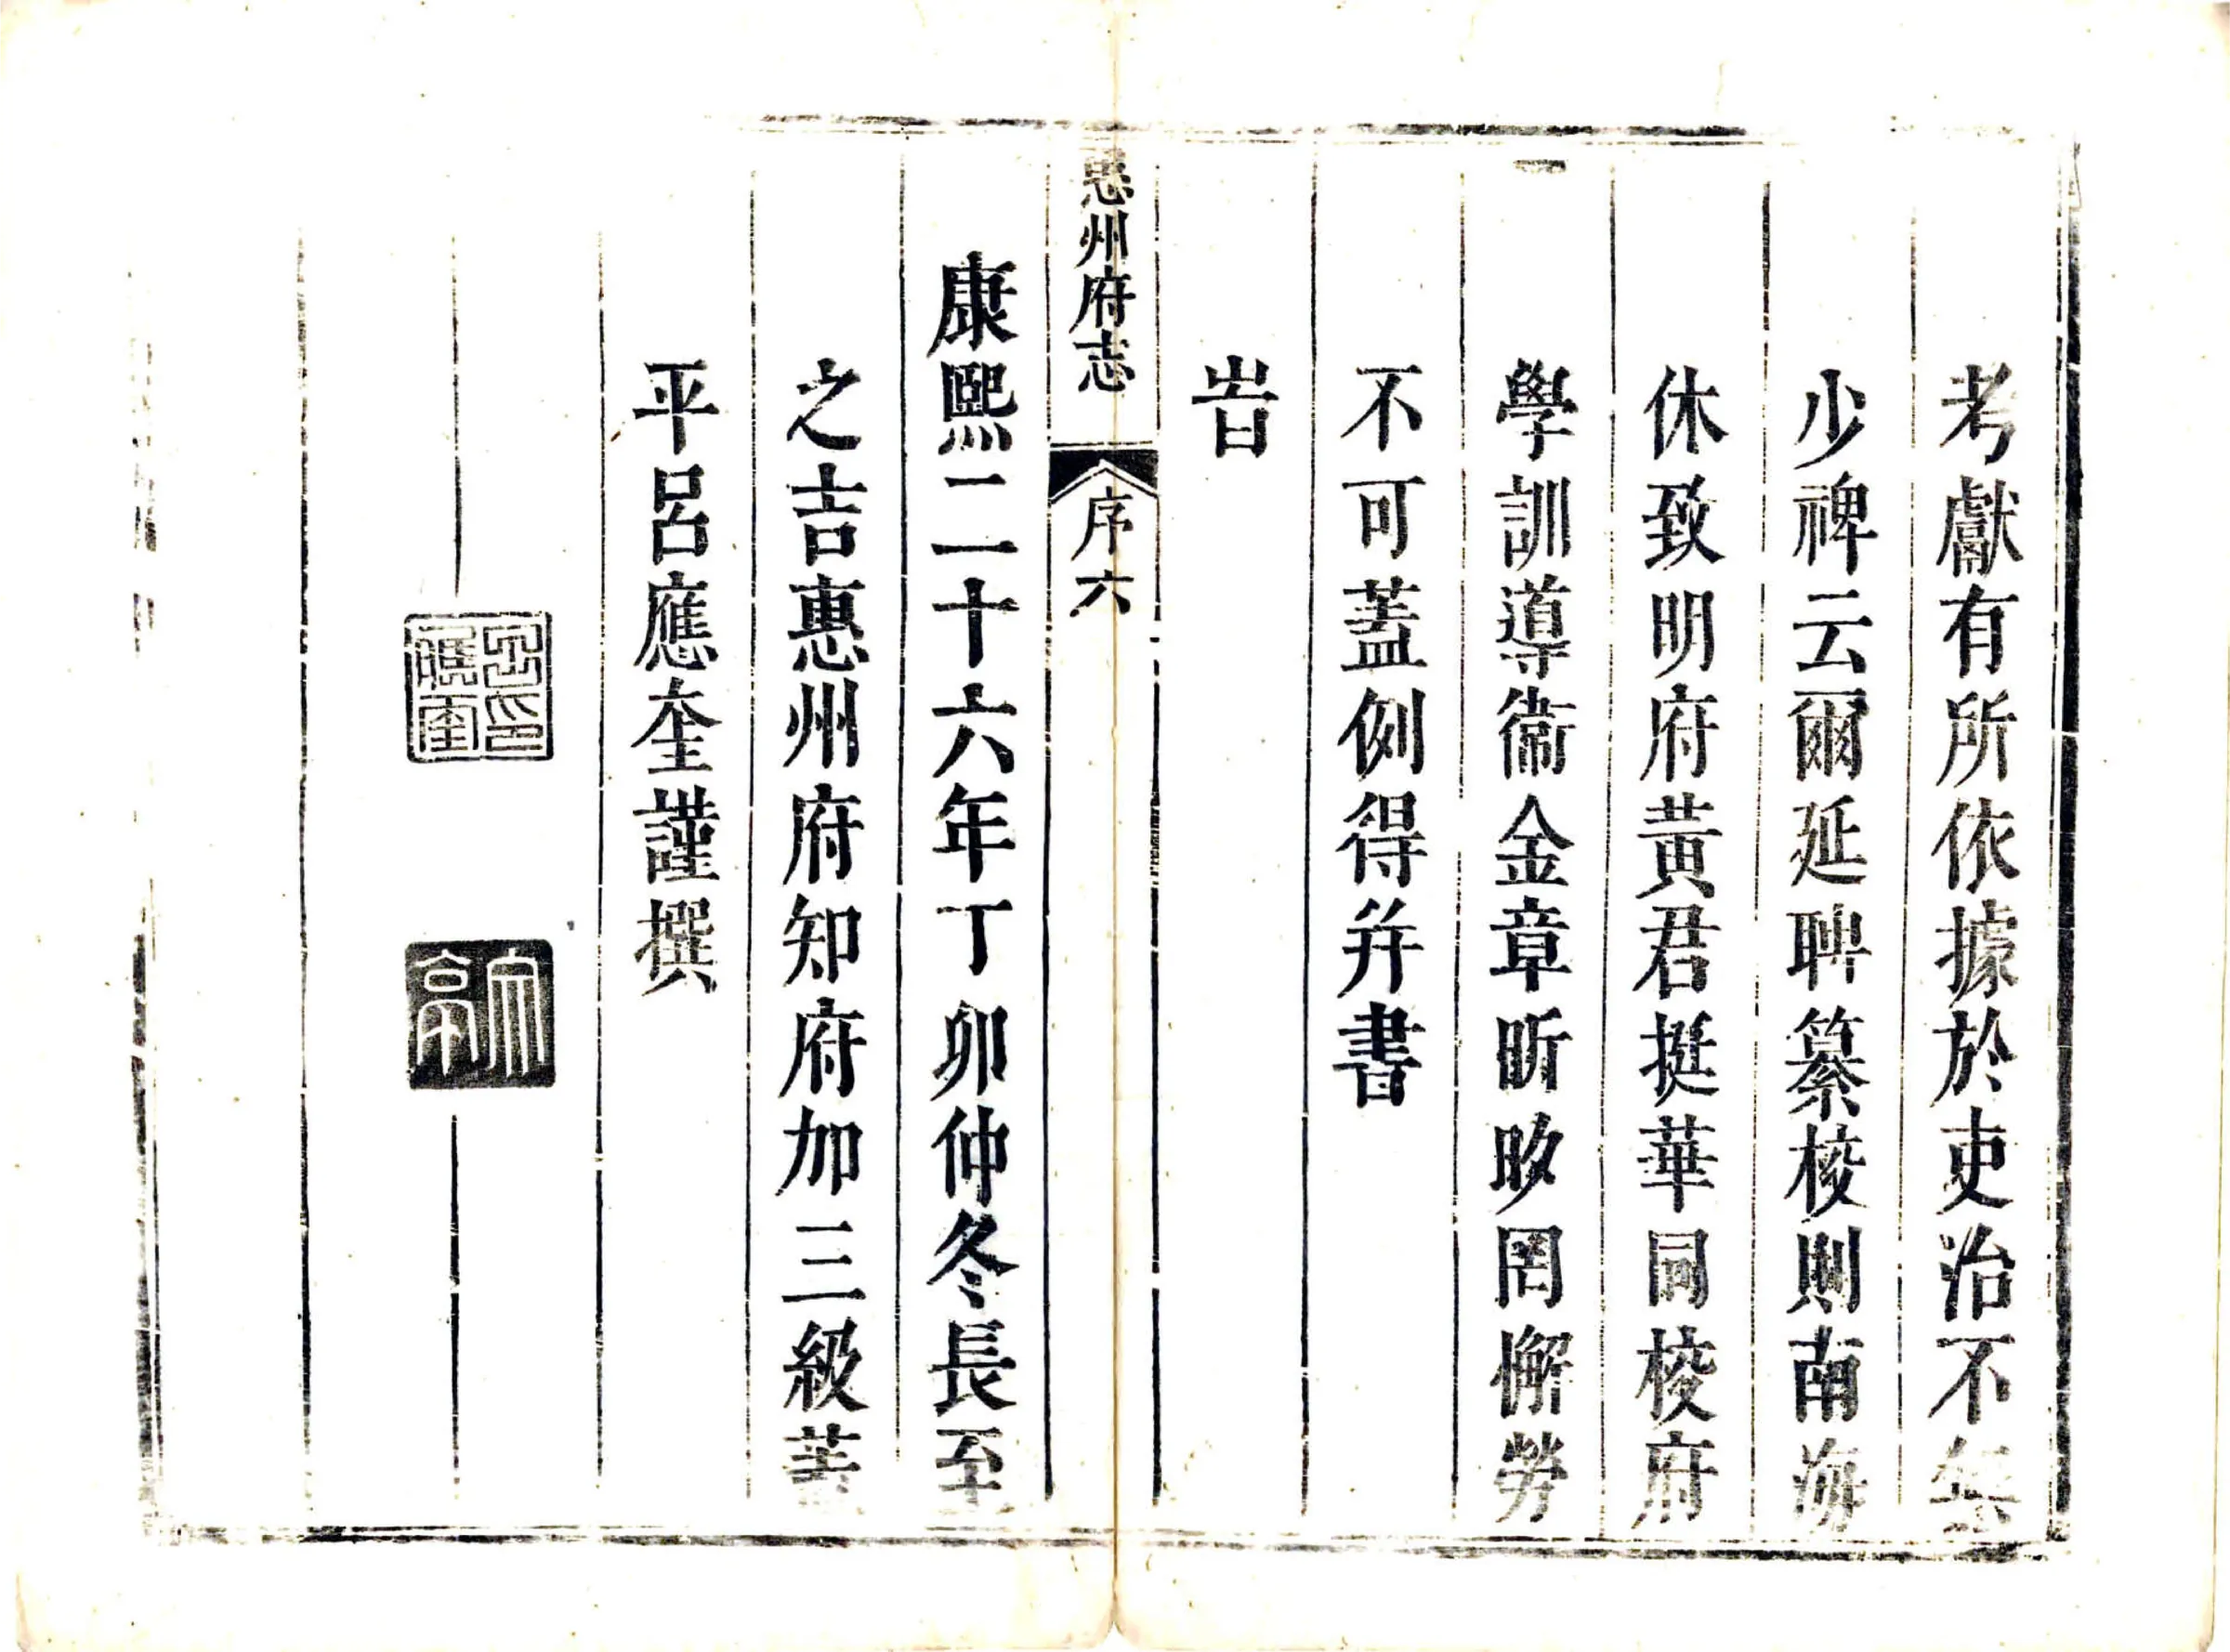 考獻有所依據於吏治不無
少裨云爾延聘纂校則南海
休致明府黃君挺華同校府
學訓導衞金章昕夕罔懈勞
不可蓋例得並書
旹
惠州府志
序六
康熙二十六年丁卯仲冬長至
之吉惠州府知府加三級
平呂應奎謹撰
呂印應奎